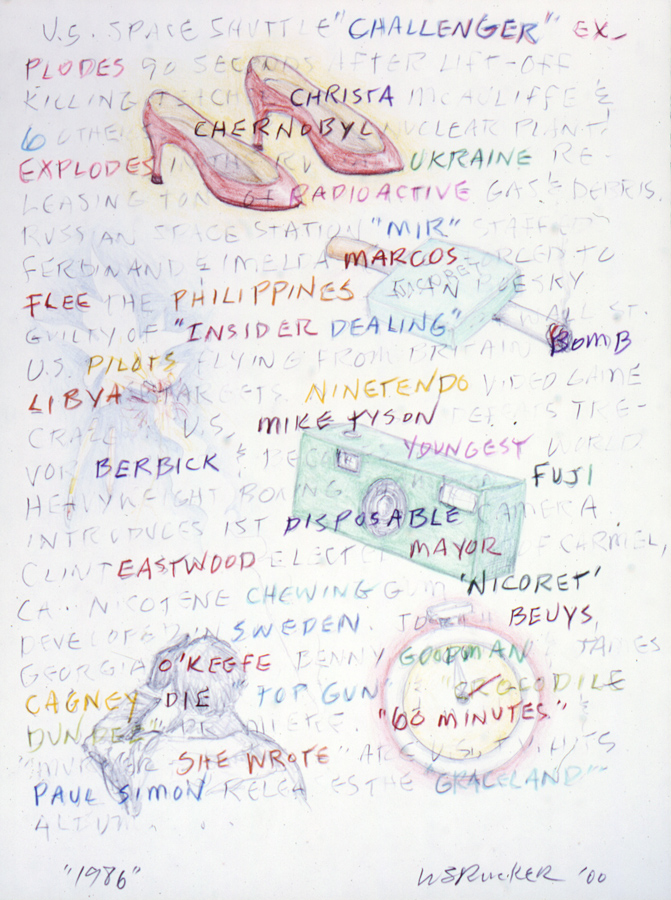 U.S. SPACE SHUTTLE "CHALLENGER" EX-
PLODES 90 SECONDS AFTER LIFT-OFF
KILLING TEACHER CHRISTA MCAULIFFE &
6 OTHERS CHERNOBYL NUCLEAR PLANT
EXPLODES IN THE UKRAINE RE-
LEASING TONS OF RADIOACTIVE GAS & DEBRIS.
RUSSIAN SPACE STATION "MIR"
FERDINAND & IMELDA MARCOS FORCED TO
FLEE THE PHILIPPINES BOESKY
GUILTY OF "INSIDER DEALING" WALL ST.
U.S. PILOTS FLYING FROM BRITAIN BOMB
LIBYA TARGETS. NINETENDO VIDEO GAME
CRAZE U.S. MIKE TYSON DEFEATS TRE-
VOR BERBICK & BECOMES YOUNGEST WORLD
HEAVYWEIGHT BOXING FUJI
INTRODUCES 1ST DISPOSABLE CAMERA.
CLINT EASTWOOD ELECTED MAYOR OF CARMEL,
CA.. NICOTENE CHEWING GUM 'NICORET'
DEVELOPED IN SWEDEN. BEUYS,
GEORGIA O'KEEFE BENNY GOODMAN JAMES
CAGNEY DIE "TOP GUN" "CROCODILE
DUNDEE" "60 MINUTES"
"MURDER SHE WROTE" ARE U.S. T.V. HITS
PAUL SIMON RELEASES THE "GRACELAND"
ALBUM...
NICORET
"1986"
WSRUCKER '00